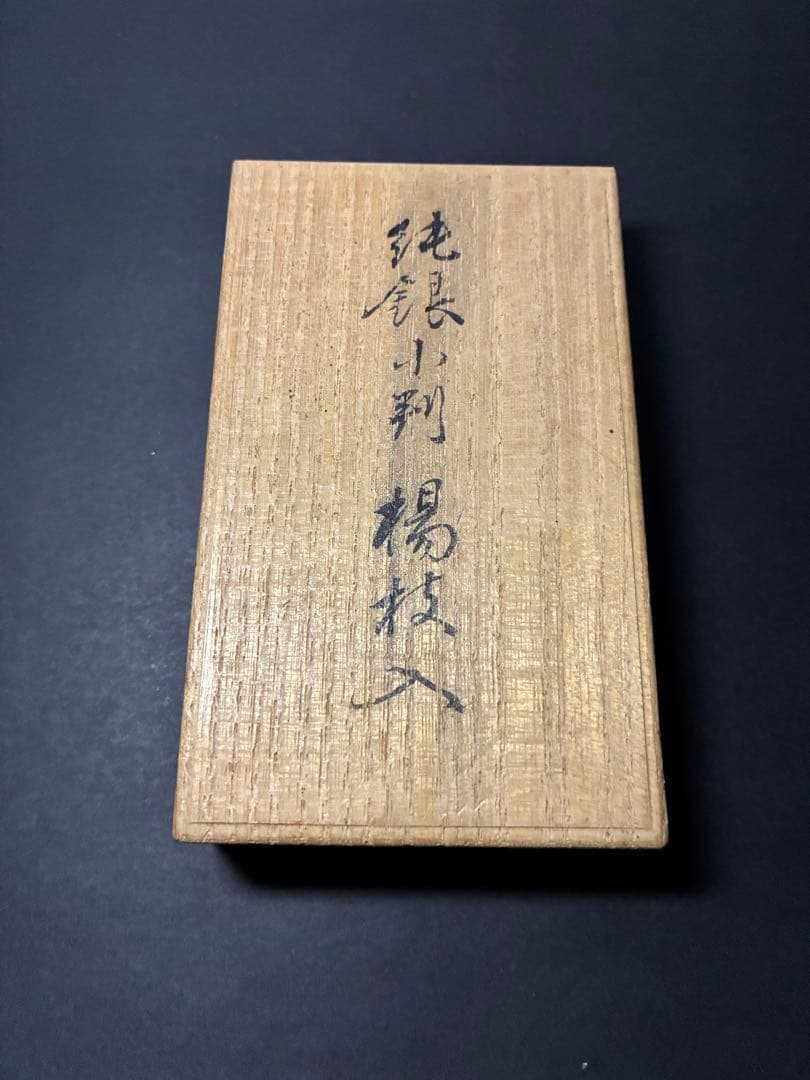 純銀小判 楊枝入